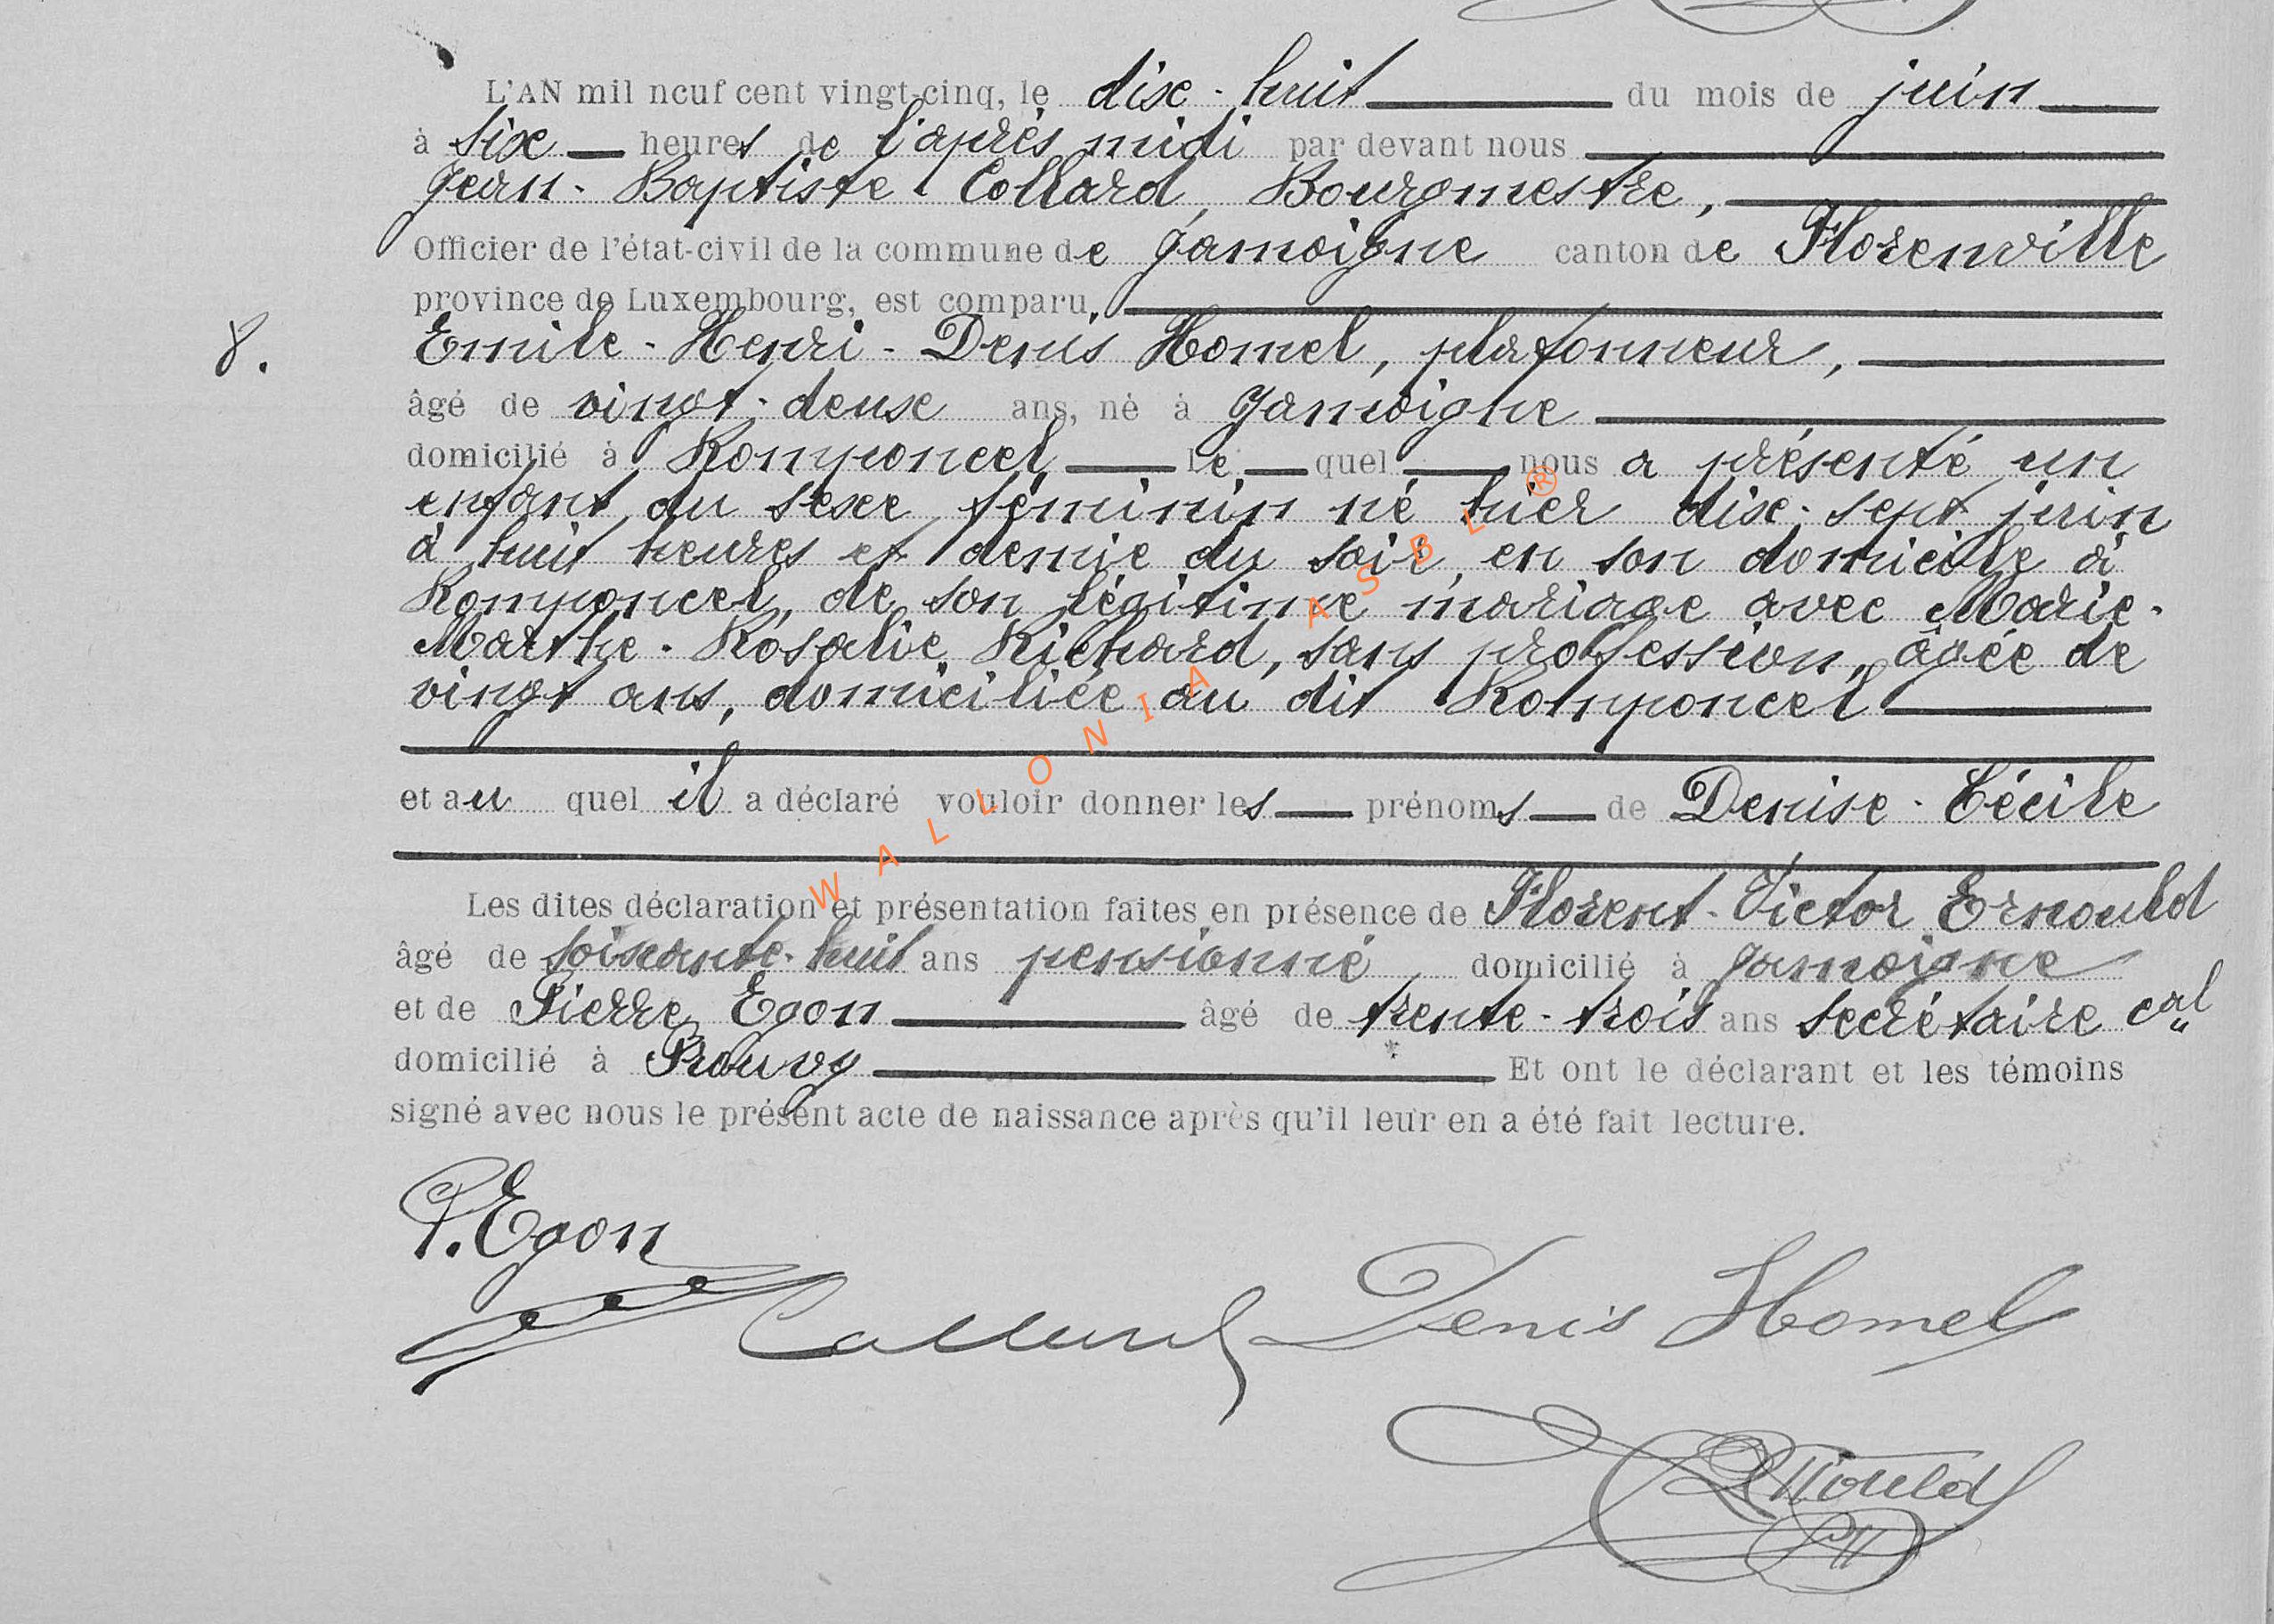 L'AN mil neuf cent vingt-cinq, le dix-huit du mois de juin
à six heures de l'après midi par devant nous
Jean-Baptiste Collard, Bourgmestre,
Officier de l'état-civil de la commune de Jamoigne canton de Florenville
province de Luxembourg, est comparu,
8. Emile-Henri-Denis Homel, plafonneur,
âgé de vingt-deux ans, né à Jamoigne
domicilié à Romponcel le quel nous a présenté un
enfant du sexe féminin né hier dix-sept juin
à huit heures et demie du soir, en son domicile à
Romponcel, de son légitime mariage avec Marie-
Marthe-Rosalie Richard, sans profession, âgée de
vingt ans, domiciliée au dit Romponcel
et au quel il a déclaré vouloir donner les prénoms de Denise-Cécile
Les dites déclaration et présentation faites en présence de Florent-Victor Ernould
âgé de soixante-huit ans pensionné, domicilié à Jamoigne
et de Pierre Egon âgé de trente-trois ans secrétaire cal
domicilié à Prouvy Et ont le déclarant et les témoins
signé avec nous le présent acte de naissance après qu'il leur en a été fait lecture.
P. Egon
Collard Denis Homel
WALLONIA ASBL ®